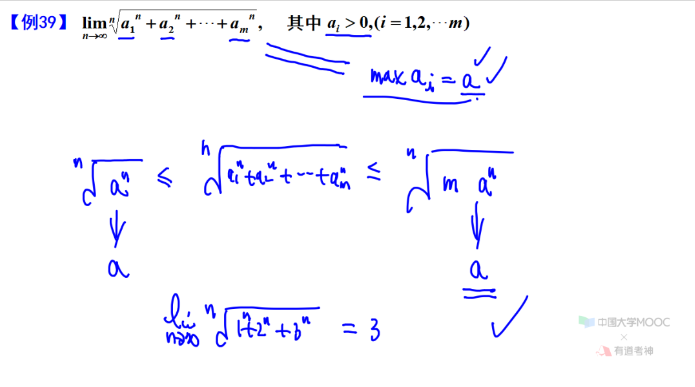 【例39】 lim n→∞ ⁿ√(a₁ⁿ + a₂ⁿ + ⋯ + aₘⁿ), 其中 aᵢ > 0, (i = 1,2,⋯m)
max aᵢ = a
ⁿ√(aⁿ) ≤ ⁿ√(a₁ⁿ + a₂ⁿ + ⋯ + aₘⁿ) ≤ ⁿ√(m aⁿ)
↓ ↓
a a
lim n→∞ ⁿ√(1ⁿ + 2ⁿ + 3ⁿ) = 3
中国大学MOOC
×
有道考神